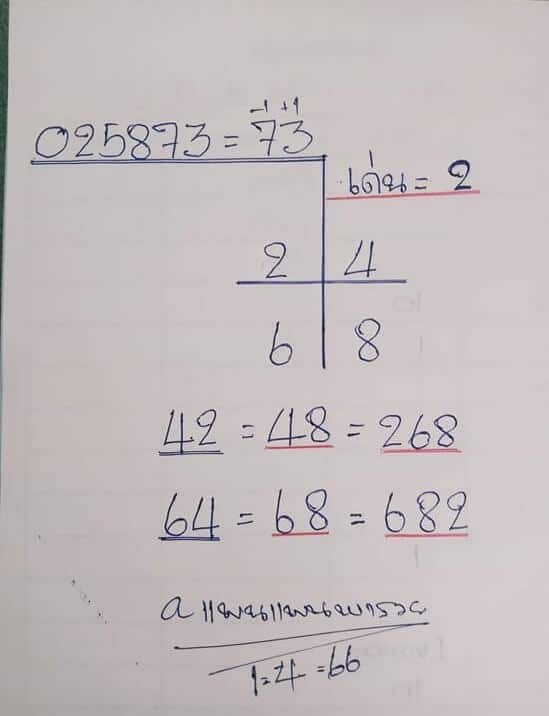 025873 = 73
-1 +1
เด่น = 2
2 4
6 8
42 = 48 = 268
64 = 68 = 682
= 66